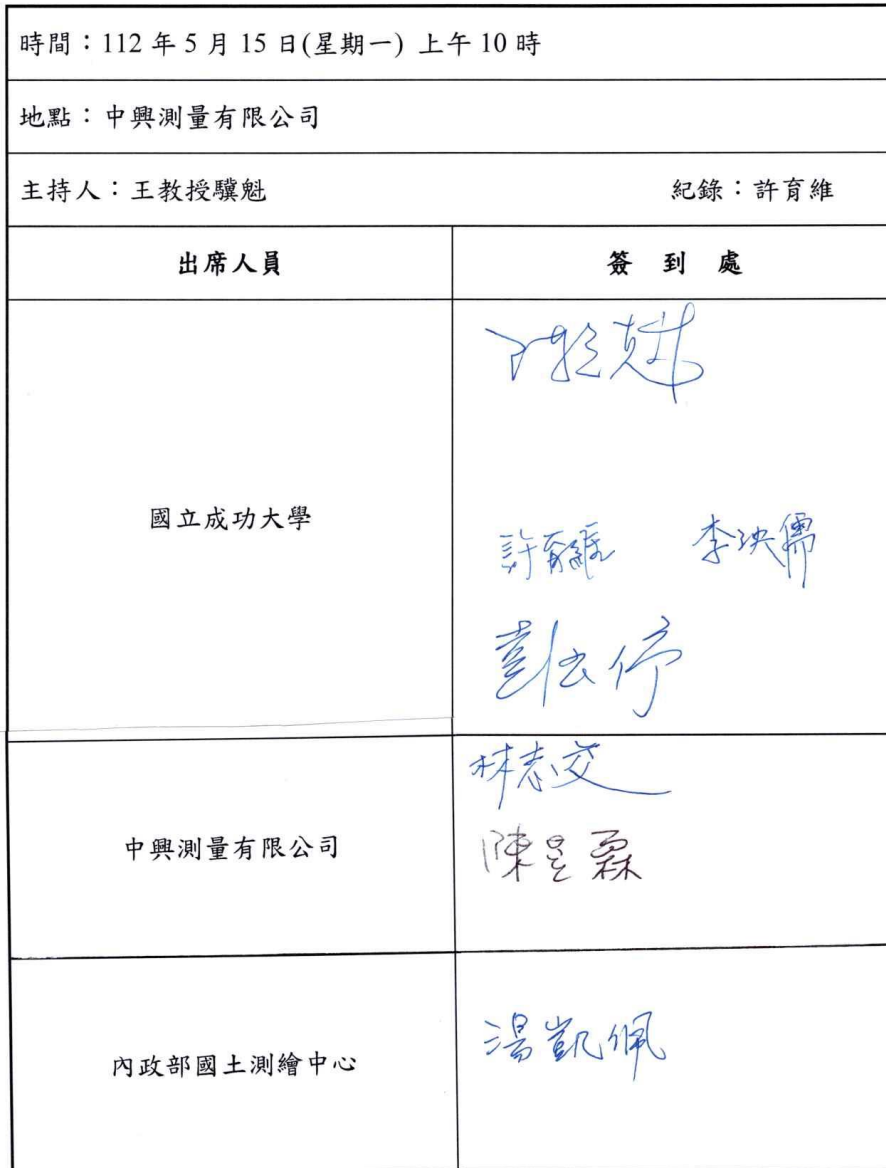 時間：112 年 5 月 15 日(星期一) 上午 10 時
地點：中興測量有限公司
主持人：王教授驥魁 紀錄：許育維
出席人員 簽 到 處
國立成功大學
許育維 李映儒
中興測量有限公司
林志交
陳昱霖
內政部國土測繪中心
湯凱佩